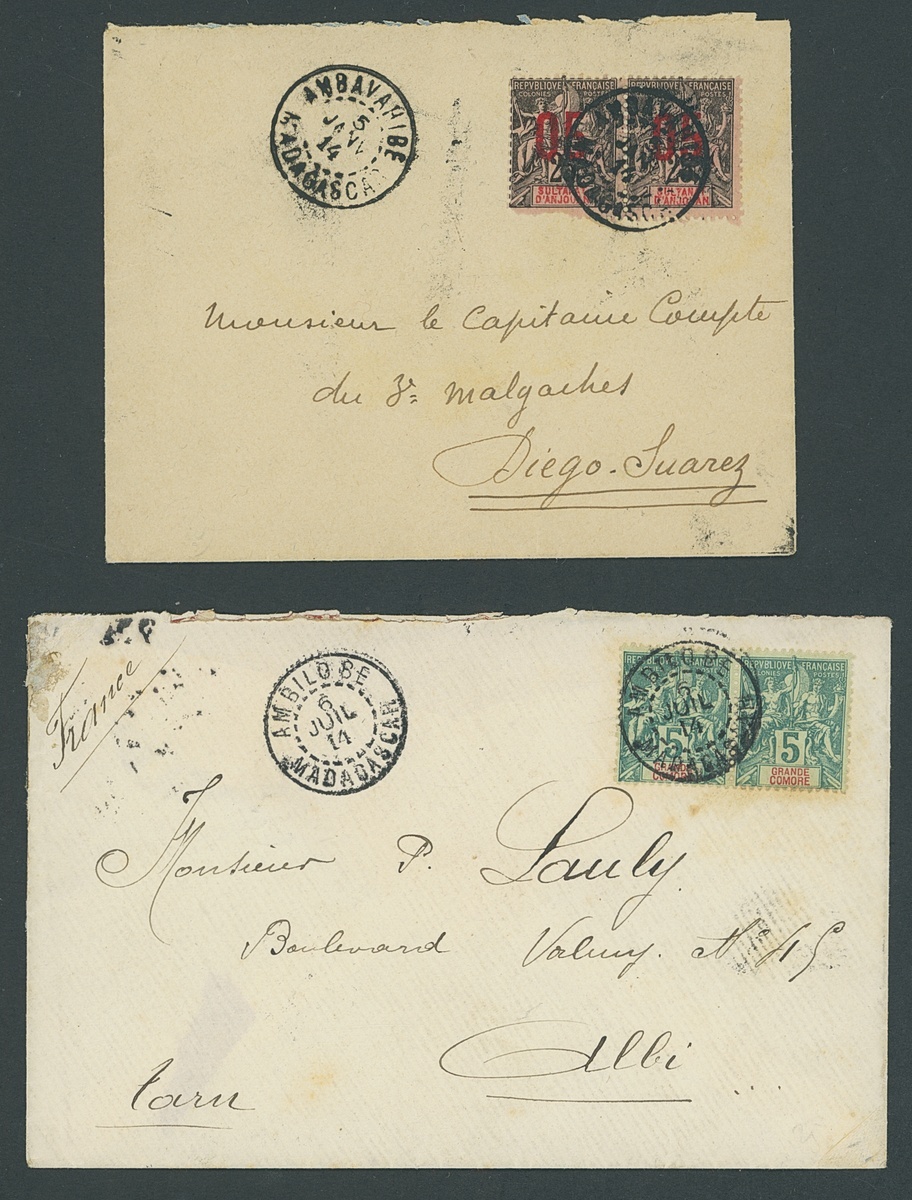 AMBAVAHIBE
5
JANV.
14
MADAGASCAR
REPVBLIQVE FRANÇAISE
COLONIES POSTES
05
SULTANAT
D'ANJOUAN
REPVBLIQVE FRANÇAISE
COLONIES POSTES
05
SULTANAT
D'ANJOUAN
Monsieur le Capitaine Compte
du 3e Malgaches
Diego-Suarez
France
AMBILOBE
6
JUIL
14
MADAGASCAR
REPVBLIQVE FRANÇAISE
5
GRANDE
COMORE
AMBILOBE
6
JUIL
14
MADAGASCAR
REPVBLIQVE FRANÇAISE
COLONIES POSTES
5
GRANDE
COMORE
Monsieur P. Lauly
Boulevard Valmy. No 45
Albi
Tarn